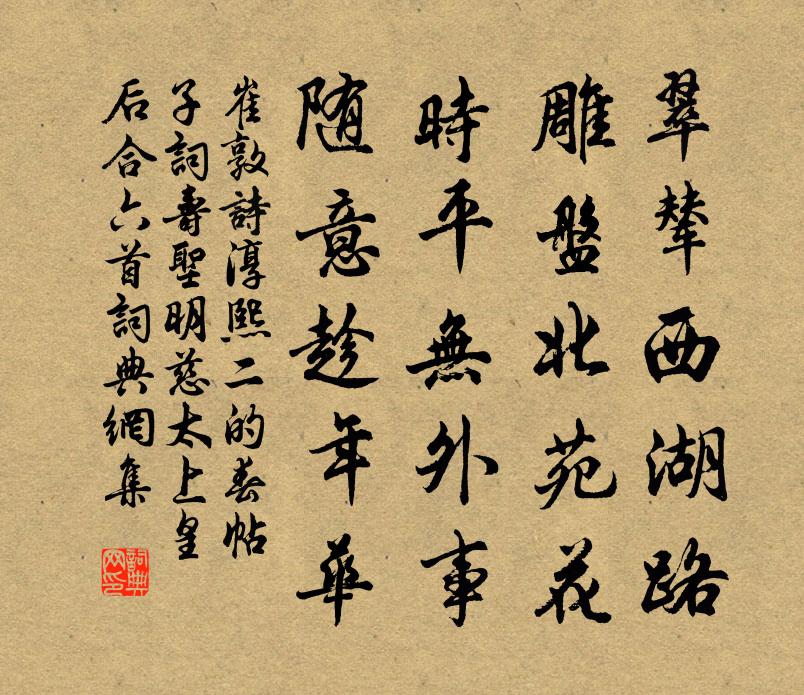 翠輦西湖路
雕盤北苑花
時平無外事
随意趁年華
崔敦詩淳熙二的春帖
子詞壽聖明慈太上皇
后合六首詞典網集
詞典
网印